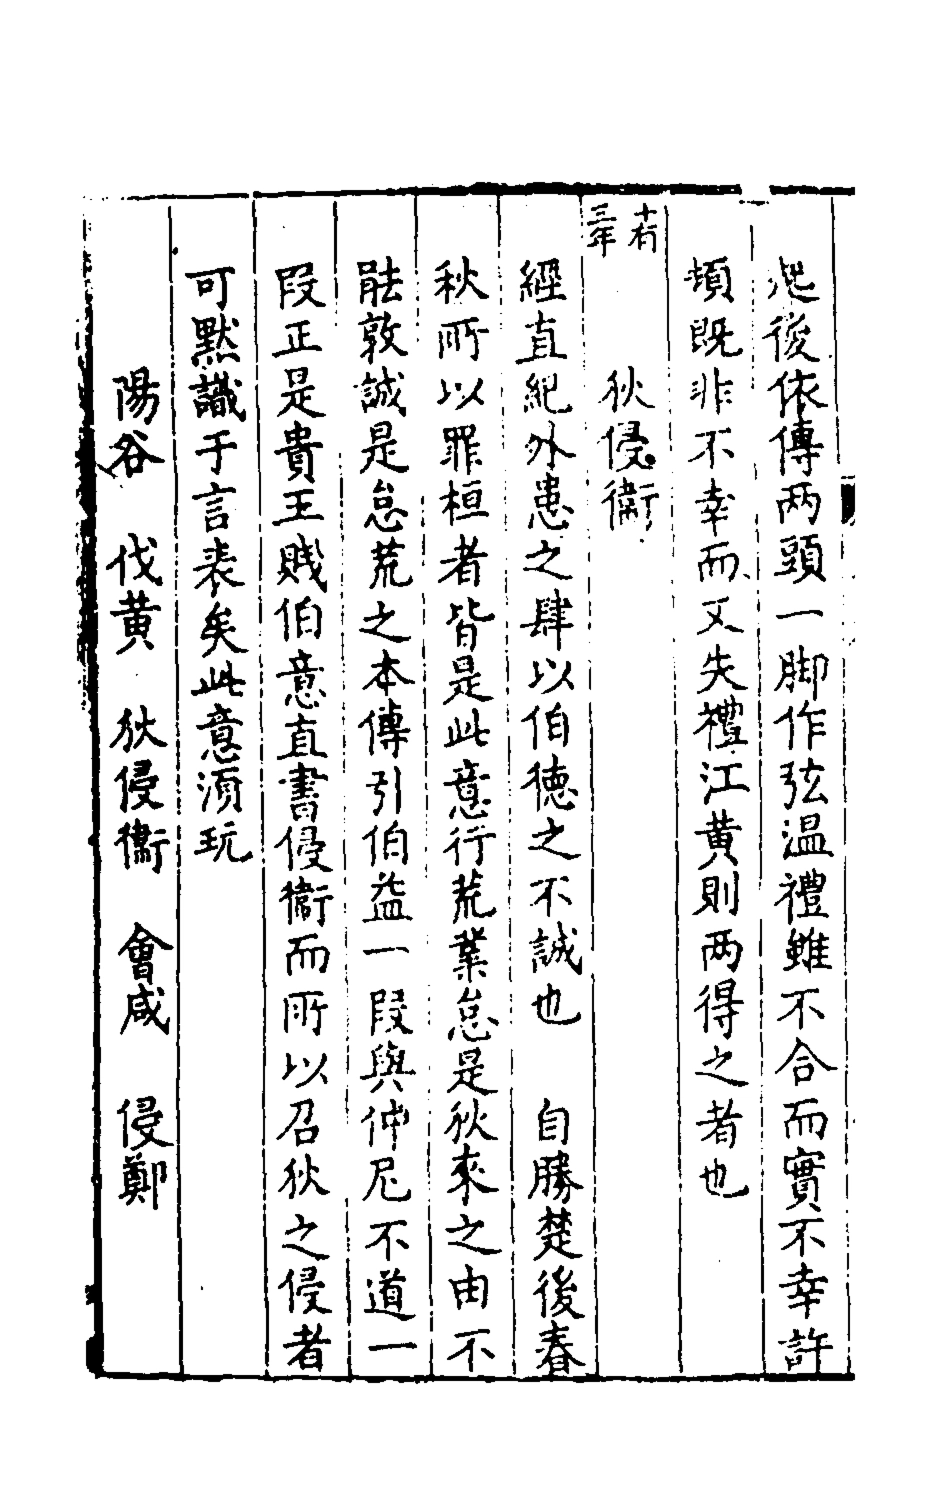 後依傳两頭一脚作弦温禮雖不合而實不幸許
頓既非不幸而又失禮江黄則两得之者也
十有三年
狄侵衞
經直紀外患之肆以伯德之不誠也　自勝楚後春
秋所以罪桓者皆是此意行荒業怠是狄來之由不
能敦誠是怠荒之本傳引伯益一段與仲尼不道一
段正是貴王賤伯意直書侵衞而所以召狄之侵者
可默識于言表矣此意須玩
陽谷　伐黄　狄侵衞　會咸　侵鄭